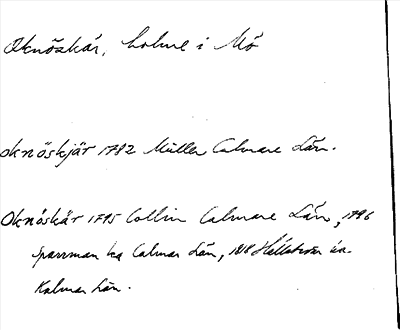 Oknöskär, holme i Mö
Oknöskjär 1782 Müller Calmare Län.
Oknöskär 1795 Collin Calmare Län, 1796
Sparrman ka Calmar Län, 1818 Hällström ka
Kalmar Län.